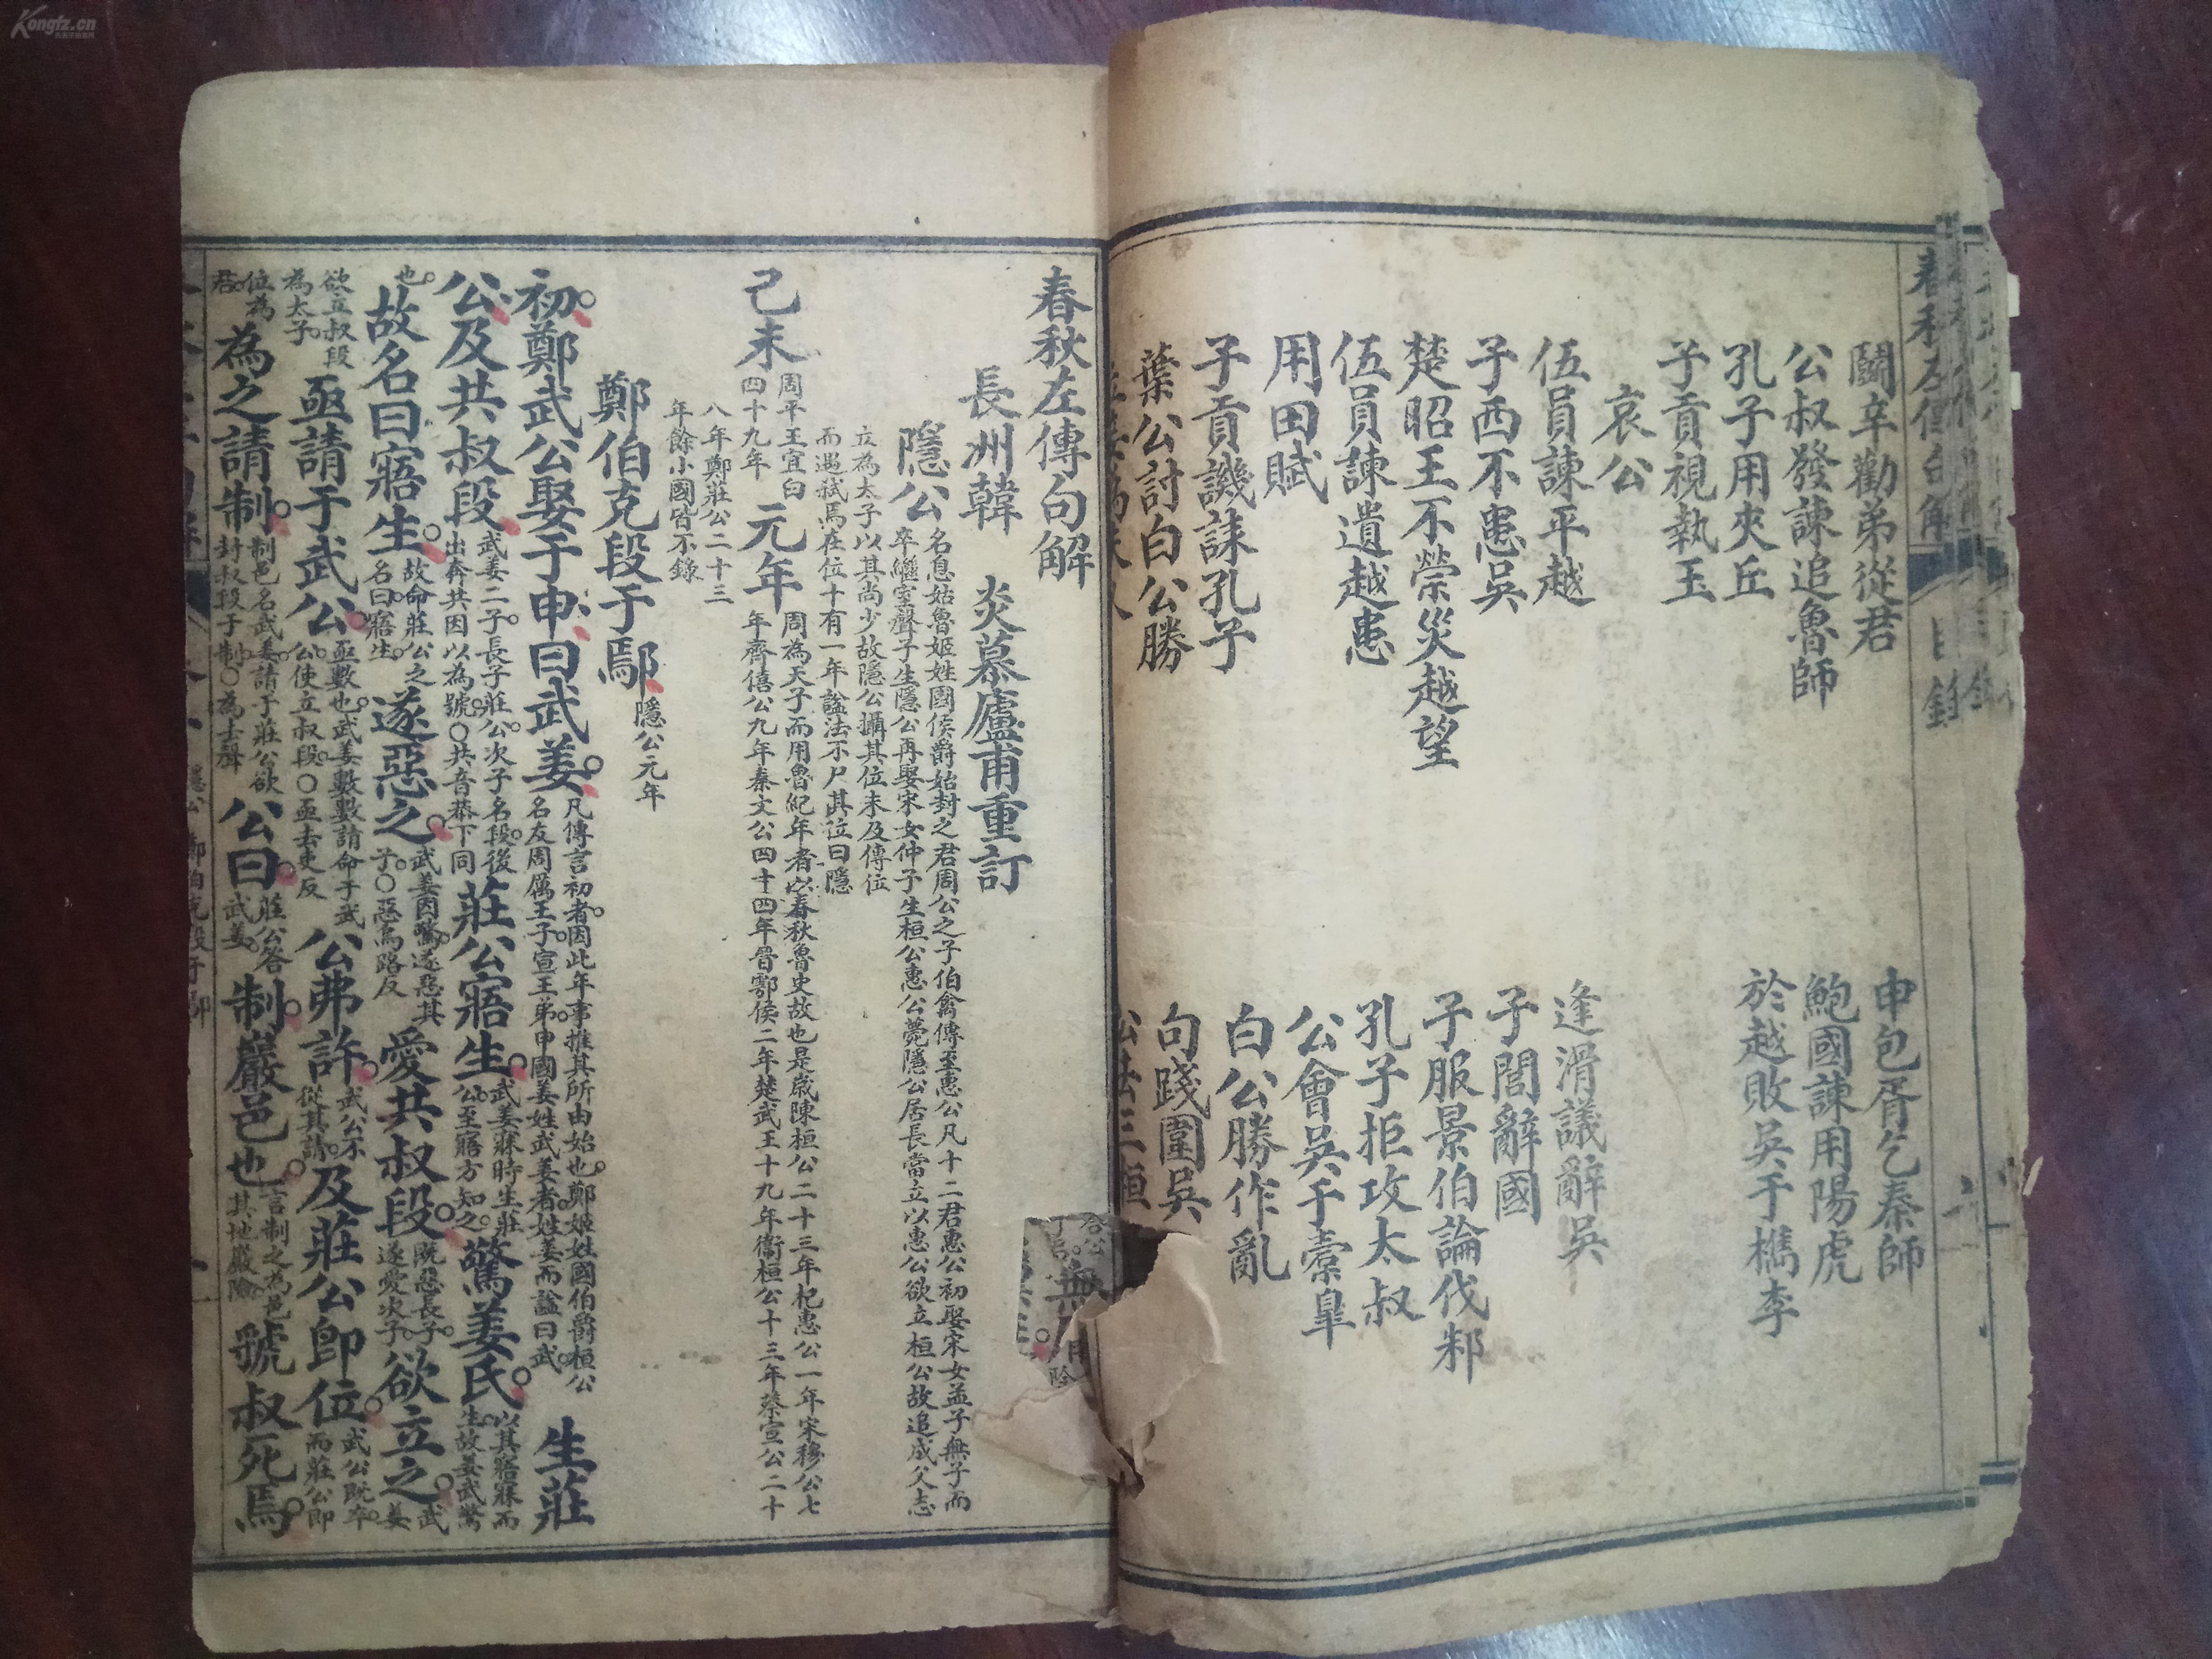 Kongfz.cn
春秋左傳句解
目錄
鬭辛勸弟從君
申包胥乞秦師
公叔發諫追魯師
鮑國諫用陽虎
孔子用夾丘
於越敗吳于檇李
子貢視執玉
哀公
伍員諫平越
逢滑議辭吳
子西不患吳
子閭辭國
楚昭王不禜災越望
子服景伯論伐邾
伍員諫遺越患
孔子拒攻太叔
用田賦
公會吳于橐皐
子貢譏誄孔子
白公勝作亂
葉公討白公勝
句踐圍吳
春秋左傳句解
長洲韓 炎慕廬甫重訂
隱公
名息姑魯姬姓國侯爵始封之君周公之子伯禽傳至惠公凡十二君惠公初娶宋女孟子無子而
卒繼室聲子生隱公再娶宋女仲子生桓公惠公薨隱公居長當立以惠公欲立桓公故追成父志
立為太子以其尚少故隱公攝其位未及傳位
而遇弑焉在位十有一年謚法不尸其位曰隱
己未
周平王宜臼
四十九年
元年
周為天子而用魯紀年者以春秋魯史故也是歲陳桓公二十三年杞惠公一年宋穆公七
年齊僖公九年秦文公四十四年晉鄂侯二年楚武王十九年衞桓公十三年蔡宣公二十
八年鄭莊公二十三
年餘小國皆不錄
鄭伯克段于鄢
隱公元年
初鄭武公娶于申曰武姜
凡傳言初者因此年事推其所由始也鄭姬姓國伯爵桓公
名友周厲王子宣王弟申國姜姓武姜者姓姜而謚曰武
生莊
公及共叔段
武姜二子長子莊公次子名段後
出奔共因以為號○共音恭下同
莊公寤生
武姜寐時生莊
公至寤方知之
驚姜氏
以其寤寐而
生故姜武驚
也
故名曰寤生
故命莊公之
名曰寤生
遂惡之
武姜因驚遂惡其
子○惡烏路反
愛共叔段
既惡長子
遂愛次子
欲立之
武
姜
欲立叔段
為太子
亟請于武公
亟數也武姜數數請命于武
公使立叔段○亟去吏反
公弗許
武公不
從其請
及莊公卽位
武公既卒
而莊公卽
位為
君
為之請制
制邑名武姜請于莊公欲
封叔段于制○為去聲
公曰
莊公答
武姜
制巖邑也
言制之為邑
其地巖險
虢叔死焉
隱公 鄭伯克段于鄢